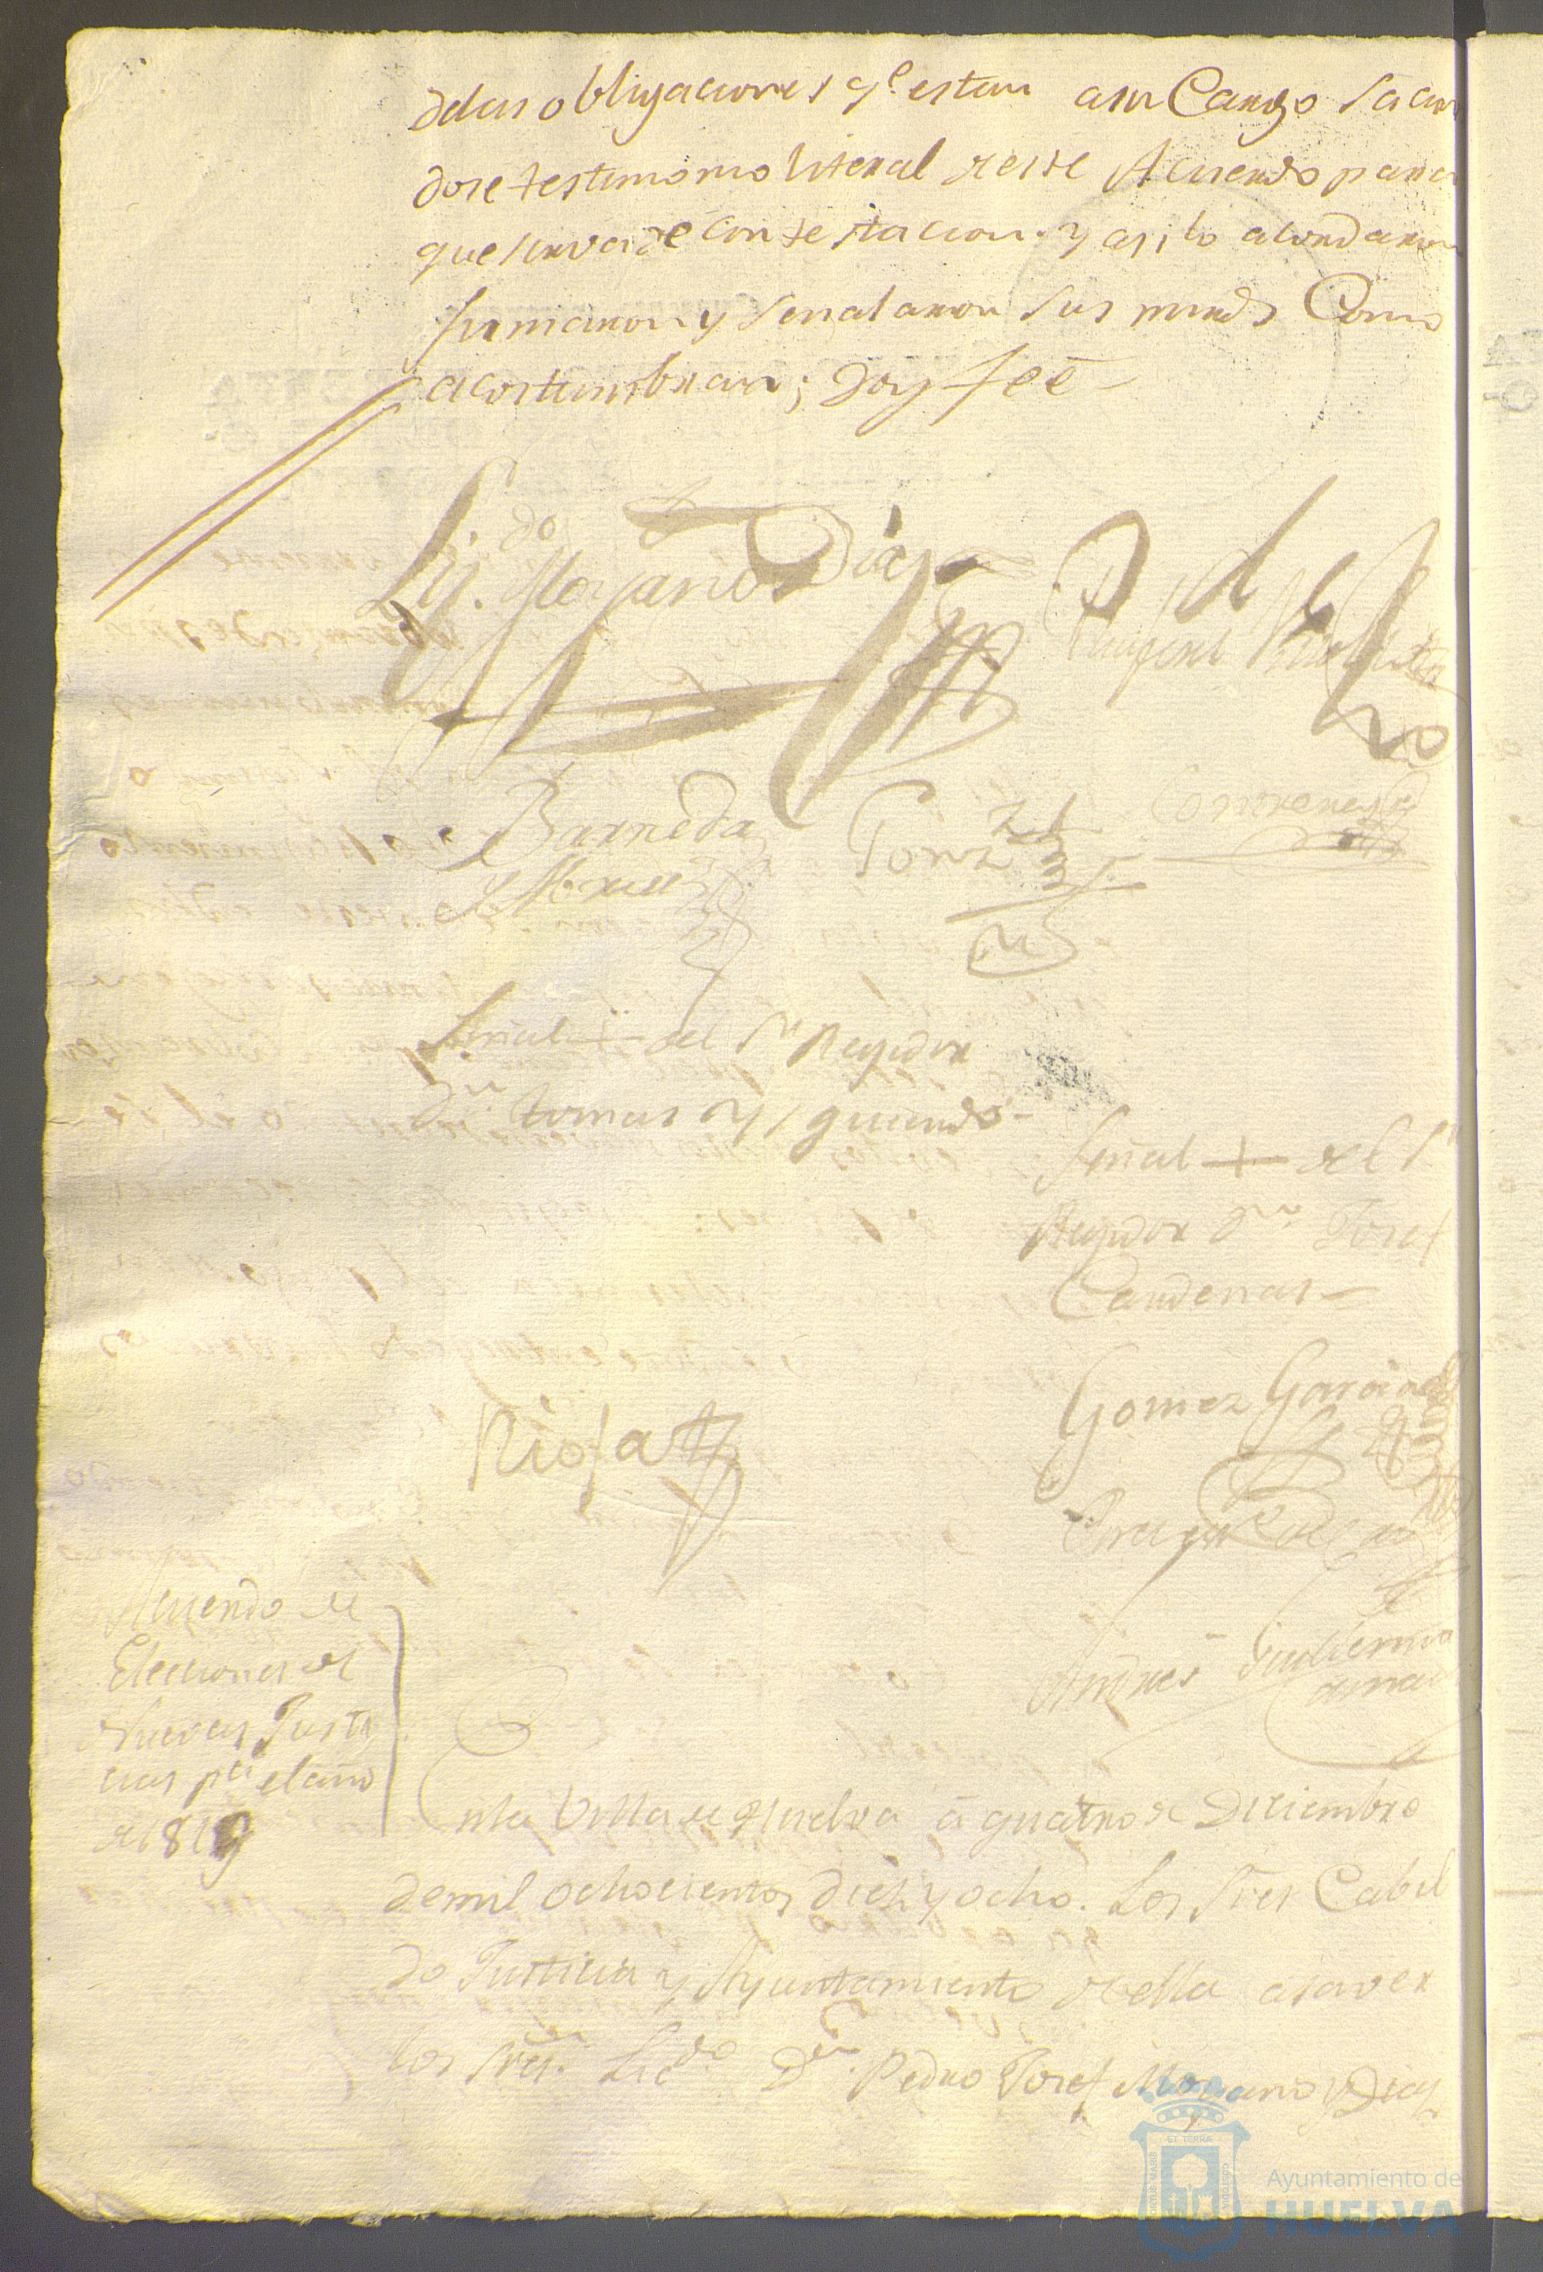 delas obligaciones q.e estan asu Cargo Sacan
dose testimonio literal deeste Acuerdo para
que sirva de contestacion. y asi lo acordaron
firmaron y señalaron sus mrds Como
acostumbran; doy feé
Lij.do Moyano y Diaz
Barreda
Gonz.z
Señal + del S.r Regidor
D.n tomas Yzquierdo
Señal + del S.r
Regidor D.n Josef
Cardenas
Gomez Garcia
Riofa
Andres
Acuerdo de
Elecciones de
Nuevas Justi
cias p.a el año
de 1819
Enla Villa de Huelva á quatro de Diciembre
demil ochocientos diez y ocho. Los S.res Cabil
do Justicia y Ayuntamiento de ella asaver
los S.res Licdo D.n Pedro Josef Moyano y Diaz
Ayuntamiento de
HUELVA